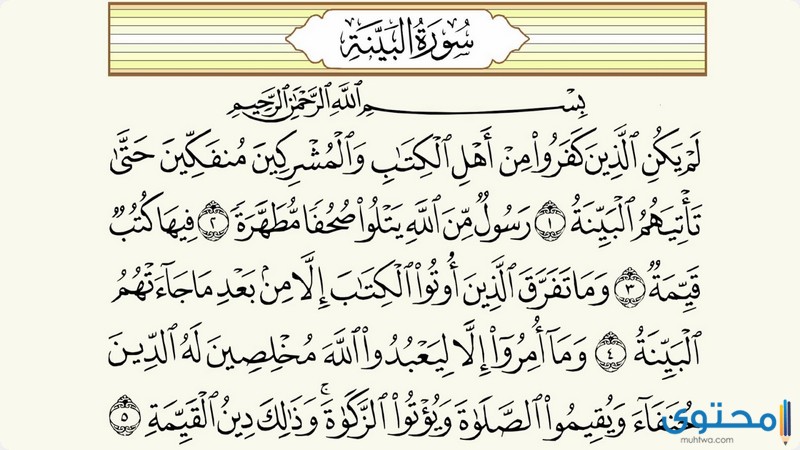 سُورَةُ البَيِّنَةِ
بِسْمِ ٱللَّهِ ٱلرَّحْمَٰنِ ٱلرَّحِيمِ
لَمْ يَكُنِ ٱلَّذِينَ كَفَرُوا۟ مِنْ أَهْلِ ٱلْكِتَٰبِ وَٱلْمُشْرِكِينَ مُنفَكِّينَ حَتَّىٰ
تَأْتِيَهُمُ ٱلْبَيِّنَةُ ١ رَسُولٌ مِّنَ ٱللَّهِ يَتْلُوا۟ صُحُفًا مُّطَهَّرَةً ٢ فِيهَا كُتُبٌ
قَيِّمَةٌ ٣ وَمَا تَفَرَّقَ ٱلَّذِينَ أُوتُوا۟ ٱلْكِتَٰبَ إِلَّا مِنۢ بَعْدِ مَا جَآءَتْهُمُ
ٱلْبَيِّنَةُ ٤ وَمَآ أُمِرُوٓا۟ إِلَّا لِيَعْبُدُوا۟ ٱللَّهَ مُخْلِصِينَ لَهُ ٱلدِّينَ
حُنَفَآءَ وَيُقِيمُوا۟ ٱلصَّلَوٰةَ وَيُؤْتُوا۟ ٱلزَّكَوٰةَ ۚ وَذَٰلِكَ دِينُ ٱلْقَيِّمَةِ ٥
محتوى
muhtwa.com